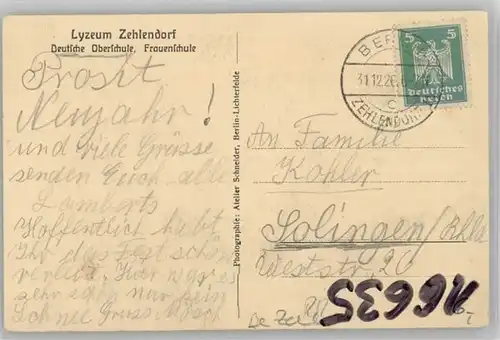 Lyzeum Zehlendorf
Deutsche Oberschule, Frauenschule
Prosit
Neujahr!
und viele Grüsse
senden Euch alle
Lamberts
Hoffentlich habt
Ihr das Fest schön
verlebt. Hier war es
sehr schön nur kein
Schnee Gruss
Photographie: Atelier Schneider, Berlin-Lichterfelde
BER
31.12.26.
C
ZEHLENDORF
5 5
Deutsches
Reich
An Familie
Kohler
Solingen
Weststr. 20
N6635